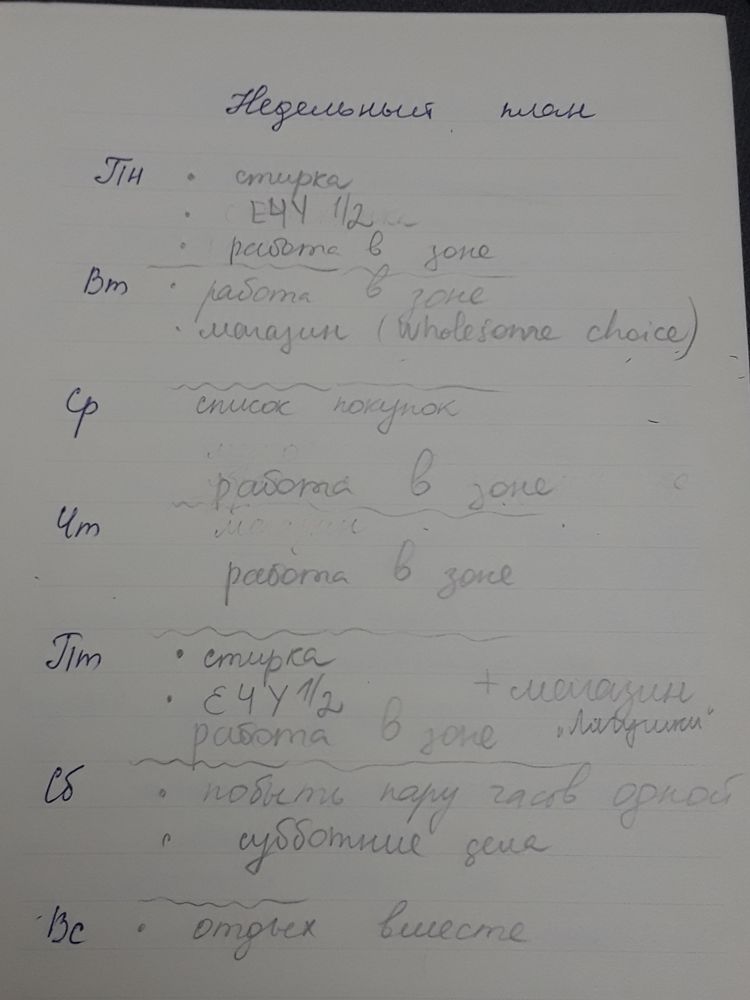 Недельный план
Пн • стирка
• ЕЧУ 1/2
• работа в зоне
Вт • работа в зоне
• магазин (wholesome choice)
Ср список покупок
работа в зоне
Чт
работа в зоне
Пт • стирка
• ЕЧУ 1/2 + магазин
работа в зоне
Сб • побыть пару часов одной
• субботние дела
Вс • отдых вместе